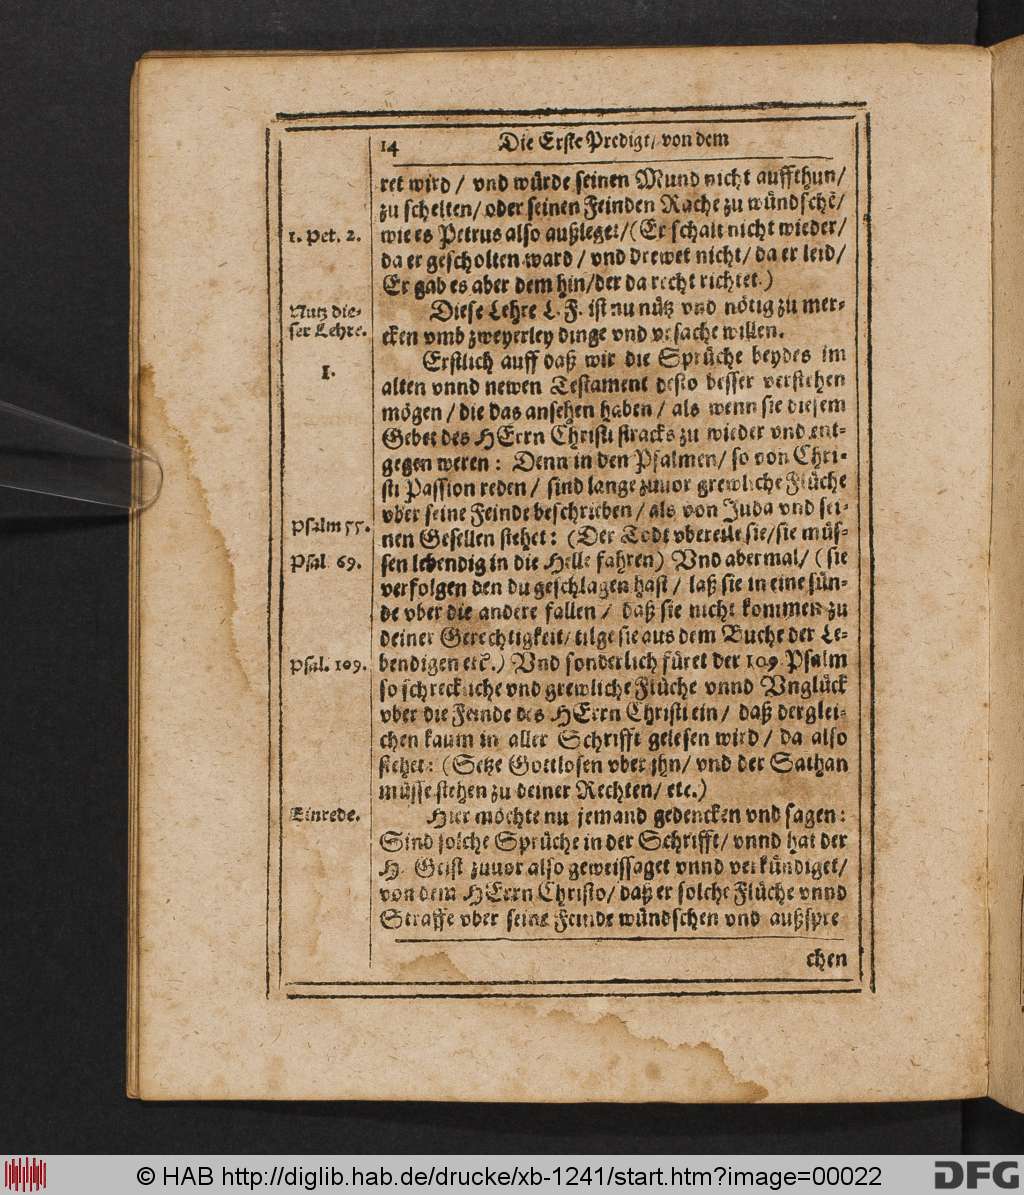 14 Die Erste Predigt/ von dem
ret wird / vnd würde seinen Mund nicht auffthun/
zu schelten/ oder seinen Feinden Rache zu wündschē/
1. Pet. 2.
wie es Petrus also außleget/ (Er schalt nicht wieder/
da er gescholten ward / vnd drewet nicht/ da er leid/
Er gab es aber dem hin/der da recht richtet.)
Nutz die-
ser Lehre.
Diese Lehre L. F. ist nu nütz vnd nötig zu mer-
cken vmb zweyerley dinge vnd vrsache willen.
1.
Erstlich auff daß wir die Sprüche beydes im
alten vnnd newen Testament desto besser verstehen
mögen / die das ansehen haben / als wenn sie diesem
Gebet des HErrn Christi stracks zu wieder vnd ent-
gegen weren: Denn in den Psalmen/ so von Chri-
sti Passion reden / sind lange zuuor grewliche Flüche
vber seine Feinde beschrieben / als von Juda vnd sei-
Psalm 55.
nen Gesellen stehet: (Der Todt vbereile sie/sie müs-
Psal. 69.
sen lebendig in die Helle fahren) Vnd abermal/ (sie
verfolgen den du geschlagen hast / laß sie in eine sün-
de vber die andere fallen / daß sie nicht kommen zu
deiner Gerechtigkeit/ tilge sie aus dem Buche der Le-
Psal. 109.
bendigen etc.) Vnd sonderlich füret der 109 Psalm
so schreckliche vnd grewliche Flüche vnnd Vnglück
vber die Feinde des HErrn Christi ein / daß derglei-
chen kaum in aller Schrifft gelesen wird / da also
stehet: (Setze Gottlosen vber jhn/ vnd der Sathan
müsse stehen zu deiner Rechten/ etc.)
Einrede.
Hier möchte nu jemand gedencken vnd sagen:
Sind solche Sprüche in der Schrifft/ vnnd hat der
H. Geist zuuor also geweissaget vnnd verkündiget/
von dem HErrn Christo/ daß er solche Flüche vnnd
Straffe vber seine Feinde wündschen vnd außspre
chen
© HAB http://diglib.hab.de/drucke/xb-1241/start.htm?image=00022
DFG